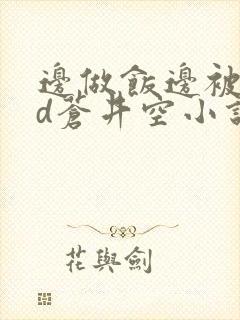 邊做飯邊被
d蒼井空小說
花與劍